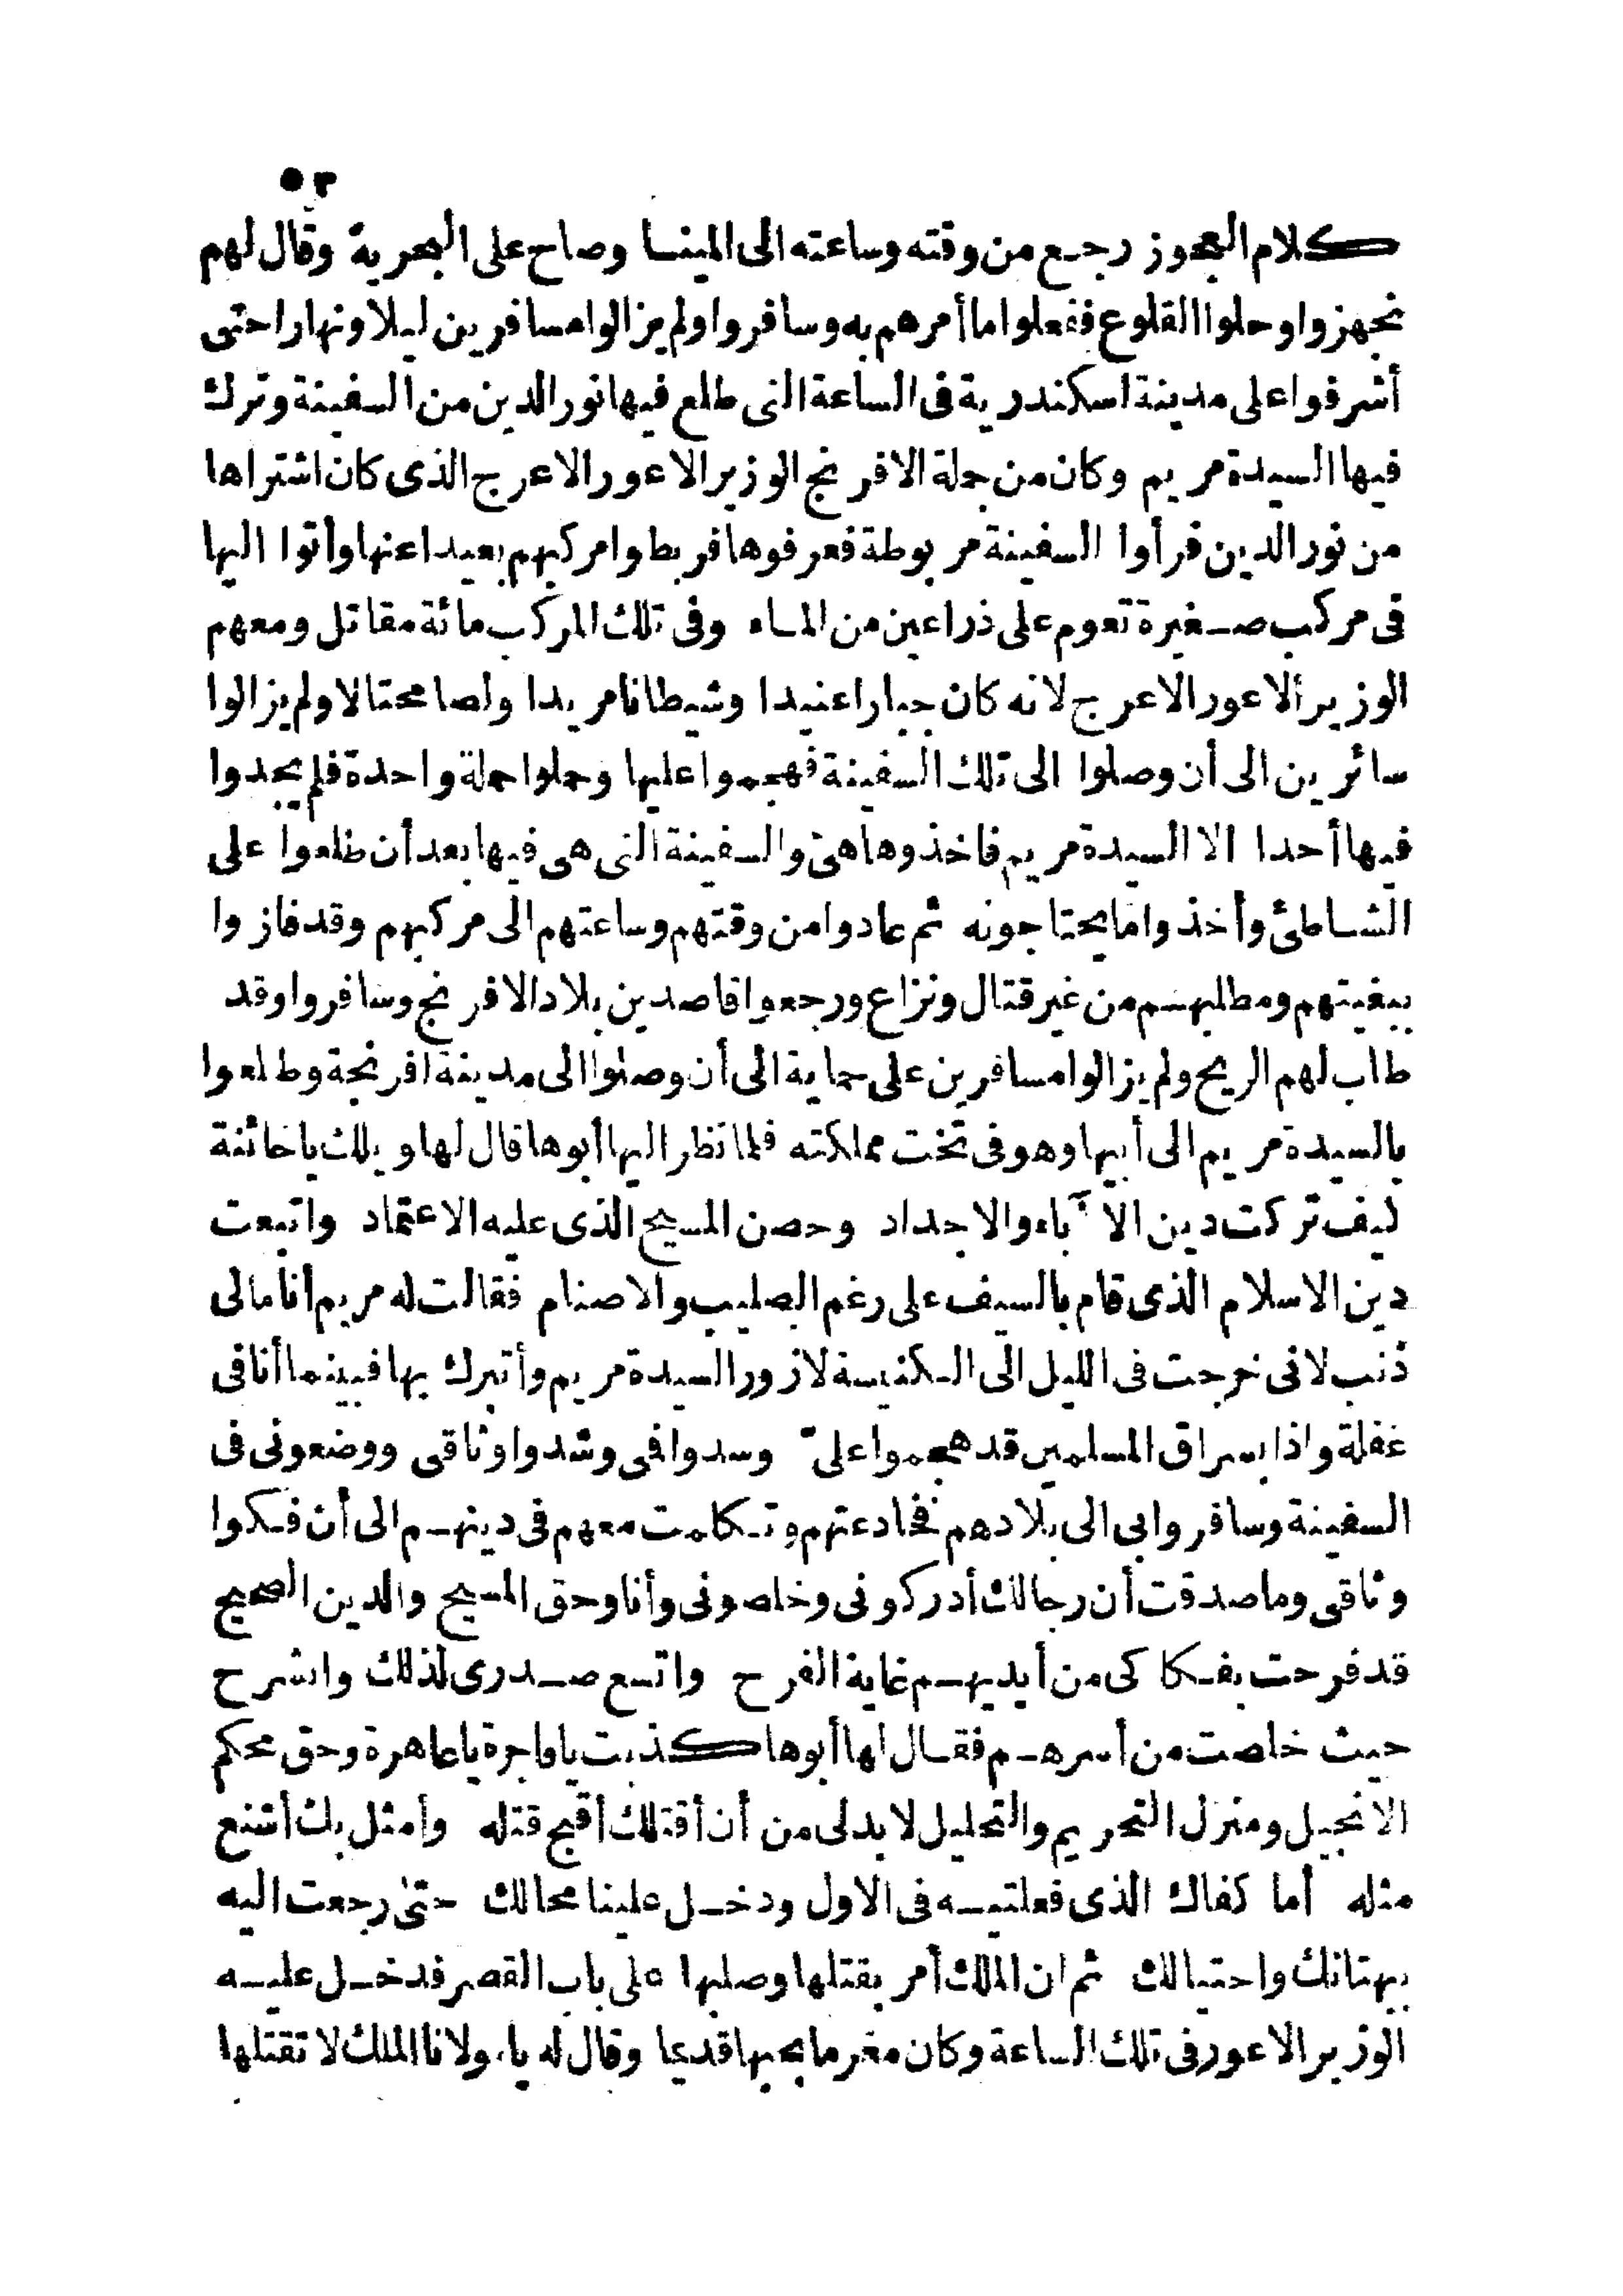 ٥٣
كلام العجوز رجع من وقته وساعته الى المينا وصاح على البحرية وقال لهم
تجهزوا وحلوا القلوع ففعلوا ما أمرهم به وسافروا ولم يزالوا مسافرين ليلا ونهارا حتى
أشرفوا على مدينة اسكندرية فى الساعة التى طلع فيها نور الدين من السفينة وترك
فيها السيدة مريم وكان من جملة الافرنج الوزير الاعور الاعرج الذى كان اشتراها
من نور الدين فرأوا السفينة مربوطة فعرفوها فربطوا مركبهم بعيدا عنها وأتوا اليها
فى مركب صغيرة تعوم على ذراعين من الماء وفى تلك المركب مائة مقاتل ومعهم
الوزير الاعور الاعرج لانه كان جبارا عنيدا وشيطانا مريدا ولصا محتالا ولم يزالوا
سائرين الى أن وصلوا الى تلك السفينة فهجموا عليها وحملوا حملة واحدة فلم يجدوا
فيها أحدا الا السيدة مريم فاخذوها هى والسفينة التى هى فيها بعد أن طلعوا على
الشاطئ وأخذوا ما يحتاجونه ثم عادوا من وقتهم وساعتهم الى مركبهم وقد فازوا
ببغيتهم ومطلبهم من غير قتال ونزاع ورجعوا قاصدين بلاد الافرنج وسافروا وقد
طاب لهم الريح ولم يزالوا مسافرين على حماية الى أن وصلوا الى مدينة افرنجة وطلعوا
بالسيدة مريم الى أبيها وهو فى تخت مملكته فلما نظر اليها أبوها قال لها ويلك يا خائنة
كيف تركت دين الآباء والاجداد وحصن المسيح الذى عليه الاعتماد واتبعت
دين الاسلام الذى قام بالسيف على رغم الصليب والاصنام فقالت له مريم أنا مالى
ذنب لانى خرجت فى الليل الى الكنيسة لازور السيدة مريم وأتبرك بها فبينما أنا فى
غفلة واذا بسراق المسلمين قد هجموا علىّ وسدوا فمى وشدوا وثاقى ووضعونى فى
السفينة وسافروا بى الى بلادهم فخادعتهم وتكلمت معهم فى دينهم الى أن فكوا
وثاقى وما صدقت أن رجالك أدركونى وخلصونى وأنا وحق المسيح والدين الصحيح
قد فرحت بفكاكى من أيديهم غاية الفرح واتسع صدرى لذلك وانشرح
حيث خلصت من أسرهم فقال لها أبوها كذبت يا فاجرة يا عاهرة وحق محكم
الانجيل ومنزل التحريم والتحليل لا بد لى من أن أقتلك أقبح قتله وأمثل بك أشنع
مثله أما كفاك الذى فعلتيه فى الاول ودخل علينا محالك حتى رجعت اليه
ببهتانك واحتيالك ثم ان الملك أمر بقتلها وصلبها على باب القصر فدخل عليه
الوزير الاعور فى تلك الساعة وكان مغرما بحبها قديما وقال له يا مولانا الملك لا تقتلها